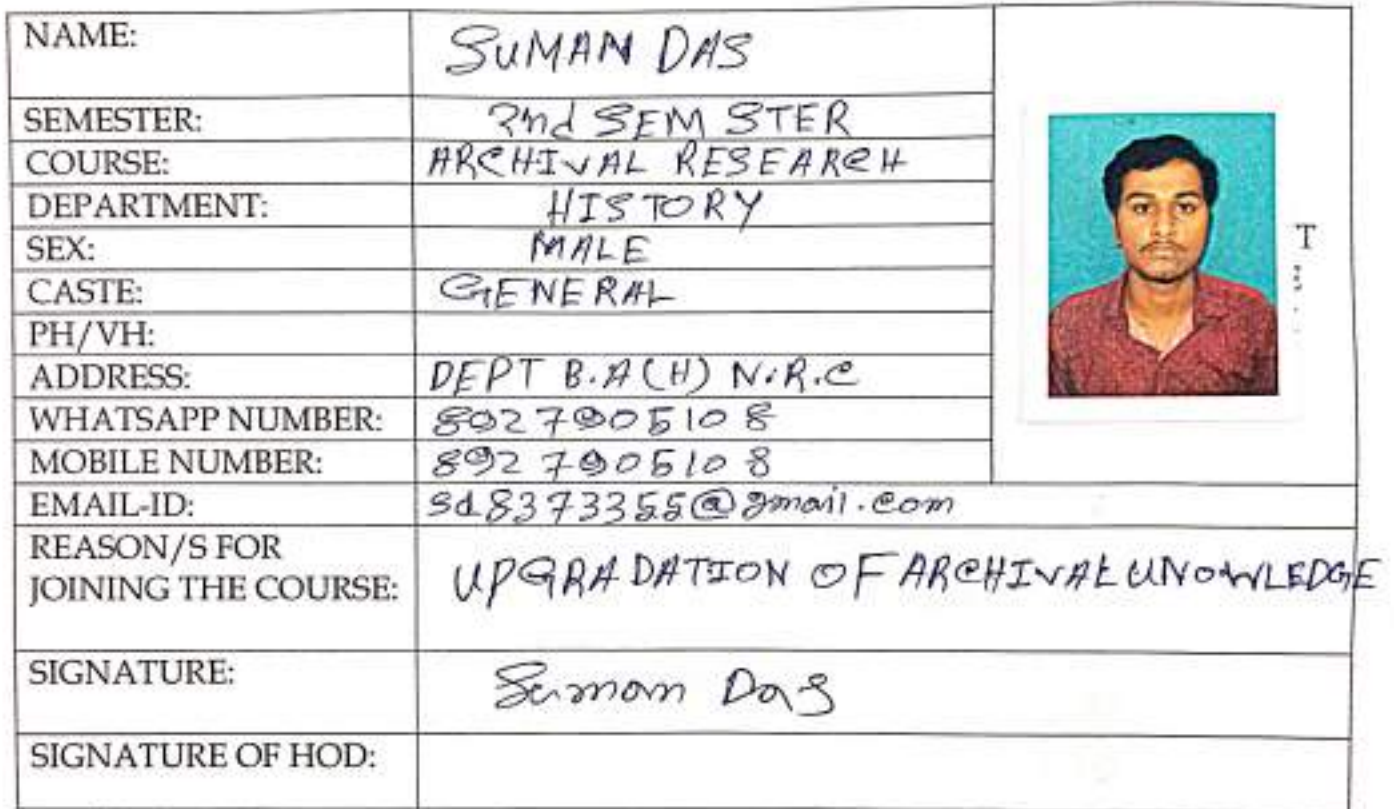 NAME: SUMAN DAS
SEMESTER: 2nd SEM STER
COURSE: ARCHIVAL RESEARCH
DEPARTMENT: HISTORY
SEX: MALE
T
CASTE: GENERAL
PH/VH:
ADDRESS: DEPT B.A(H) N.R.C
WHATSAPP NUMBER: 8927905108
MOBILE NUMBER: 8927905108
EMAIL-ID: sd8373355@gmail.com
REASON/S FOR
JOINING THE COURSE: UPGRADATION OF ARCHIVAL UNOWLEDGE
SIGNATURE: Suman Das
SIGNATURE OF HOD: